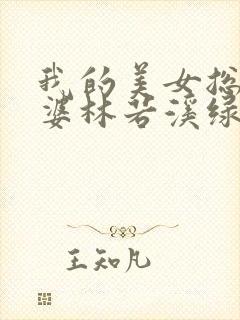 我的美女总
婆林若溪绿
王知凡